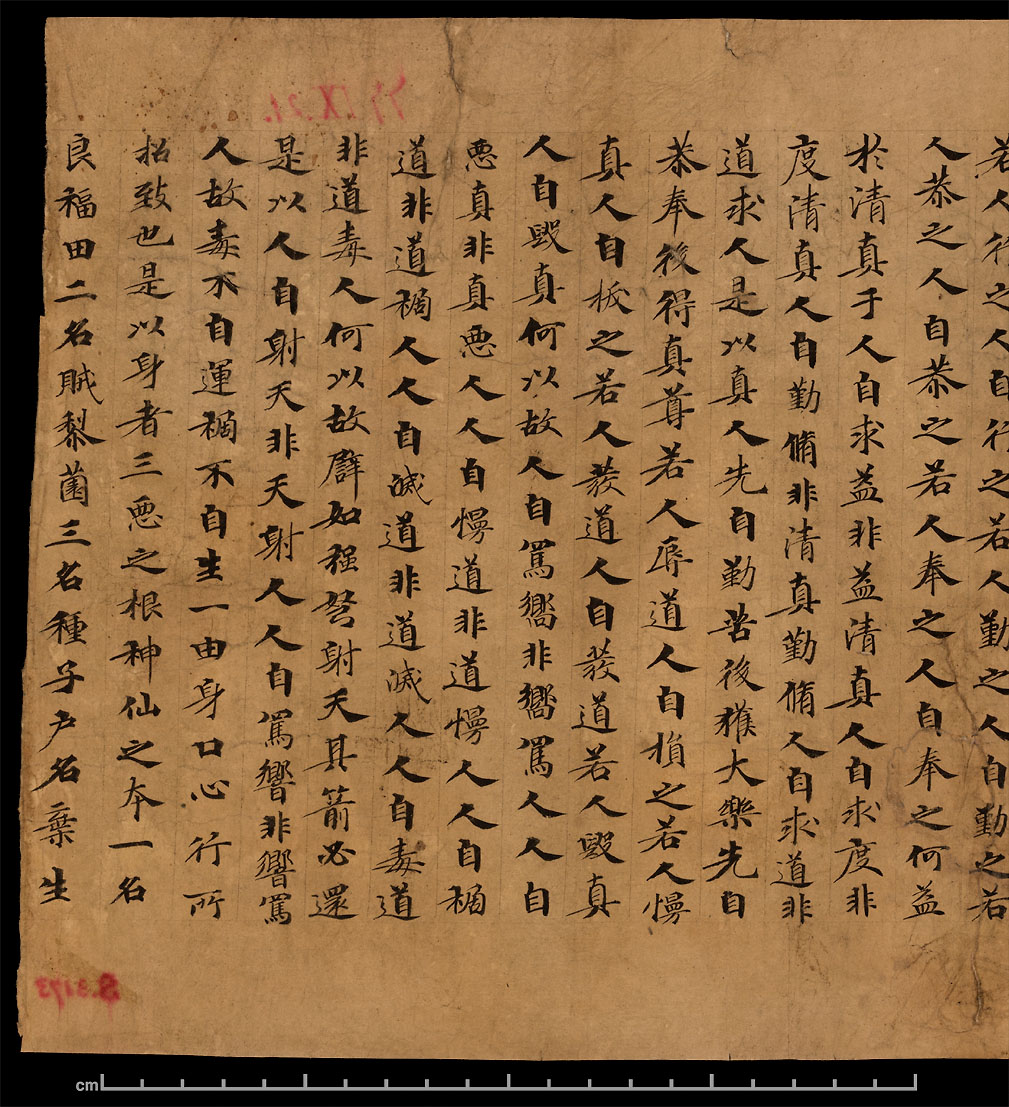 若人行之人自行之若人勤之人自勤之若
人恭之人自恭之若人奉之人自奉之何益
於清真于人自求益非益清真人自求度非
度清真人自勤脩非清真勤脩人自求道非
道求人是以真人先自勤苦後獲大樂先自
恭奉後得真尊若人辱道人自損之若人慢
真人自板之若人發道人自發道若人毀真
人自毀真何以故人自罵嚮非嚮罵人人自
惡真非真惡人人自慢道非道慢人人自禍
道非道禍人人自滅道非道滅人人自毒道
非道毒人何以故譬如強弩射天其箭必還
是以人自射天非天射人人自罵響非響罵
人故毒不自運禍不自生一由身口心行所
招致也是以身者三惡之根神仙之本一名
良福田二名賊藜菌三名種子戶名棄生
cm